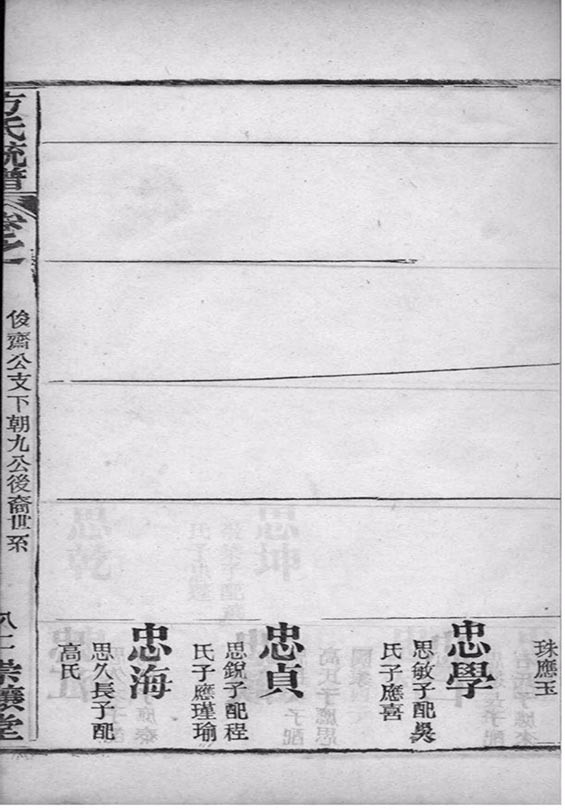 珠應玉
忠學
思敏子配吳
氏子應喜
忠貞
思銳子配程
氏子應瑾瑜
忠海
思久長子配
高氏
方氏統譜
卷之一
俊齋公支下朝九公後裔世系
八二
堂